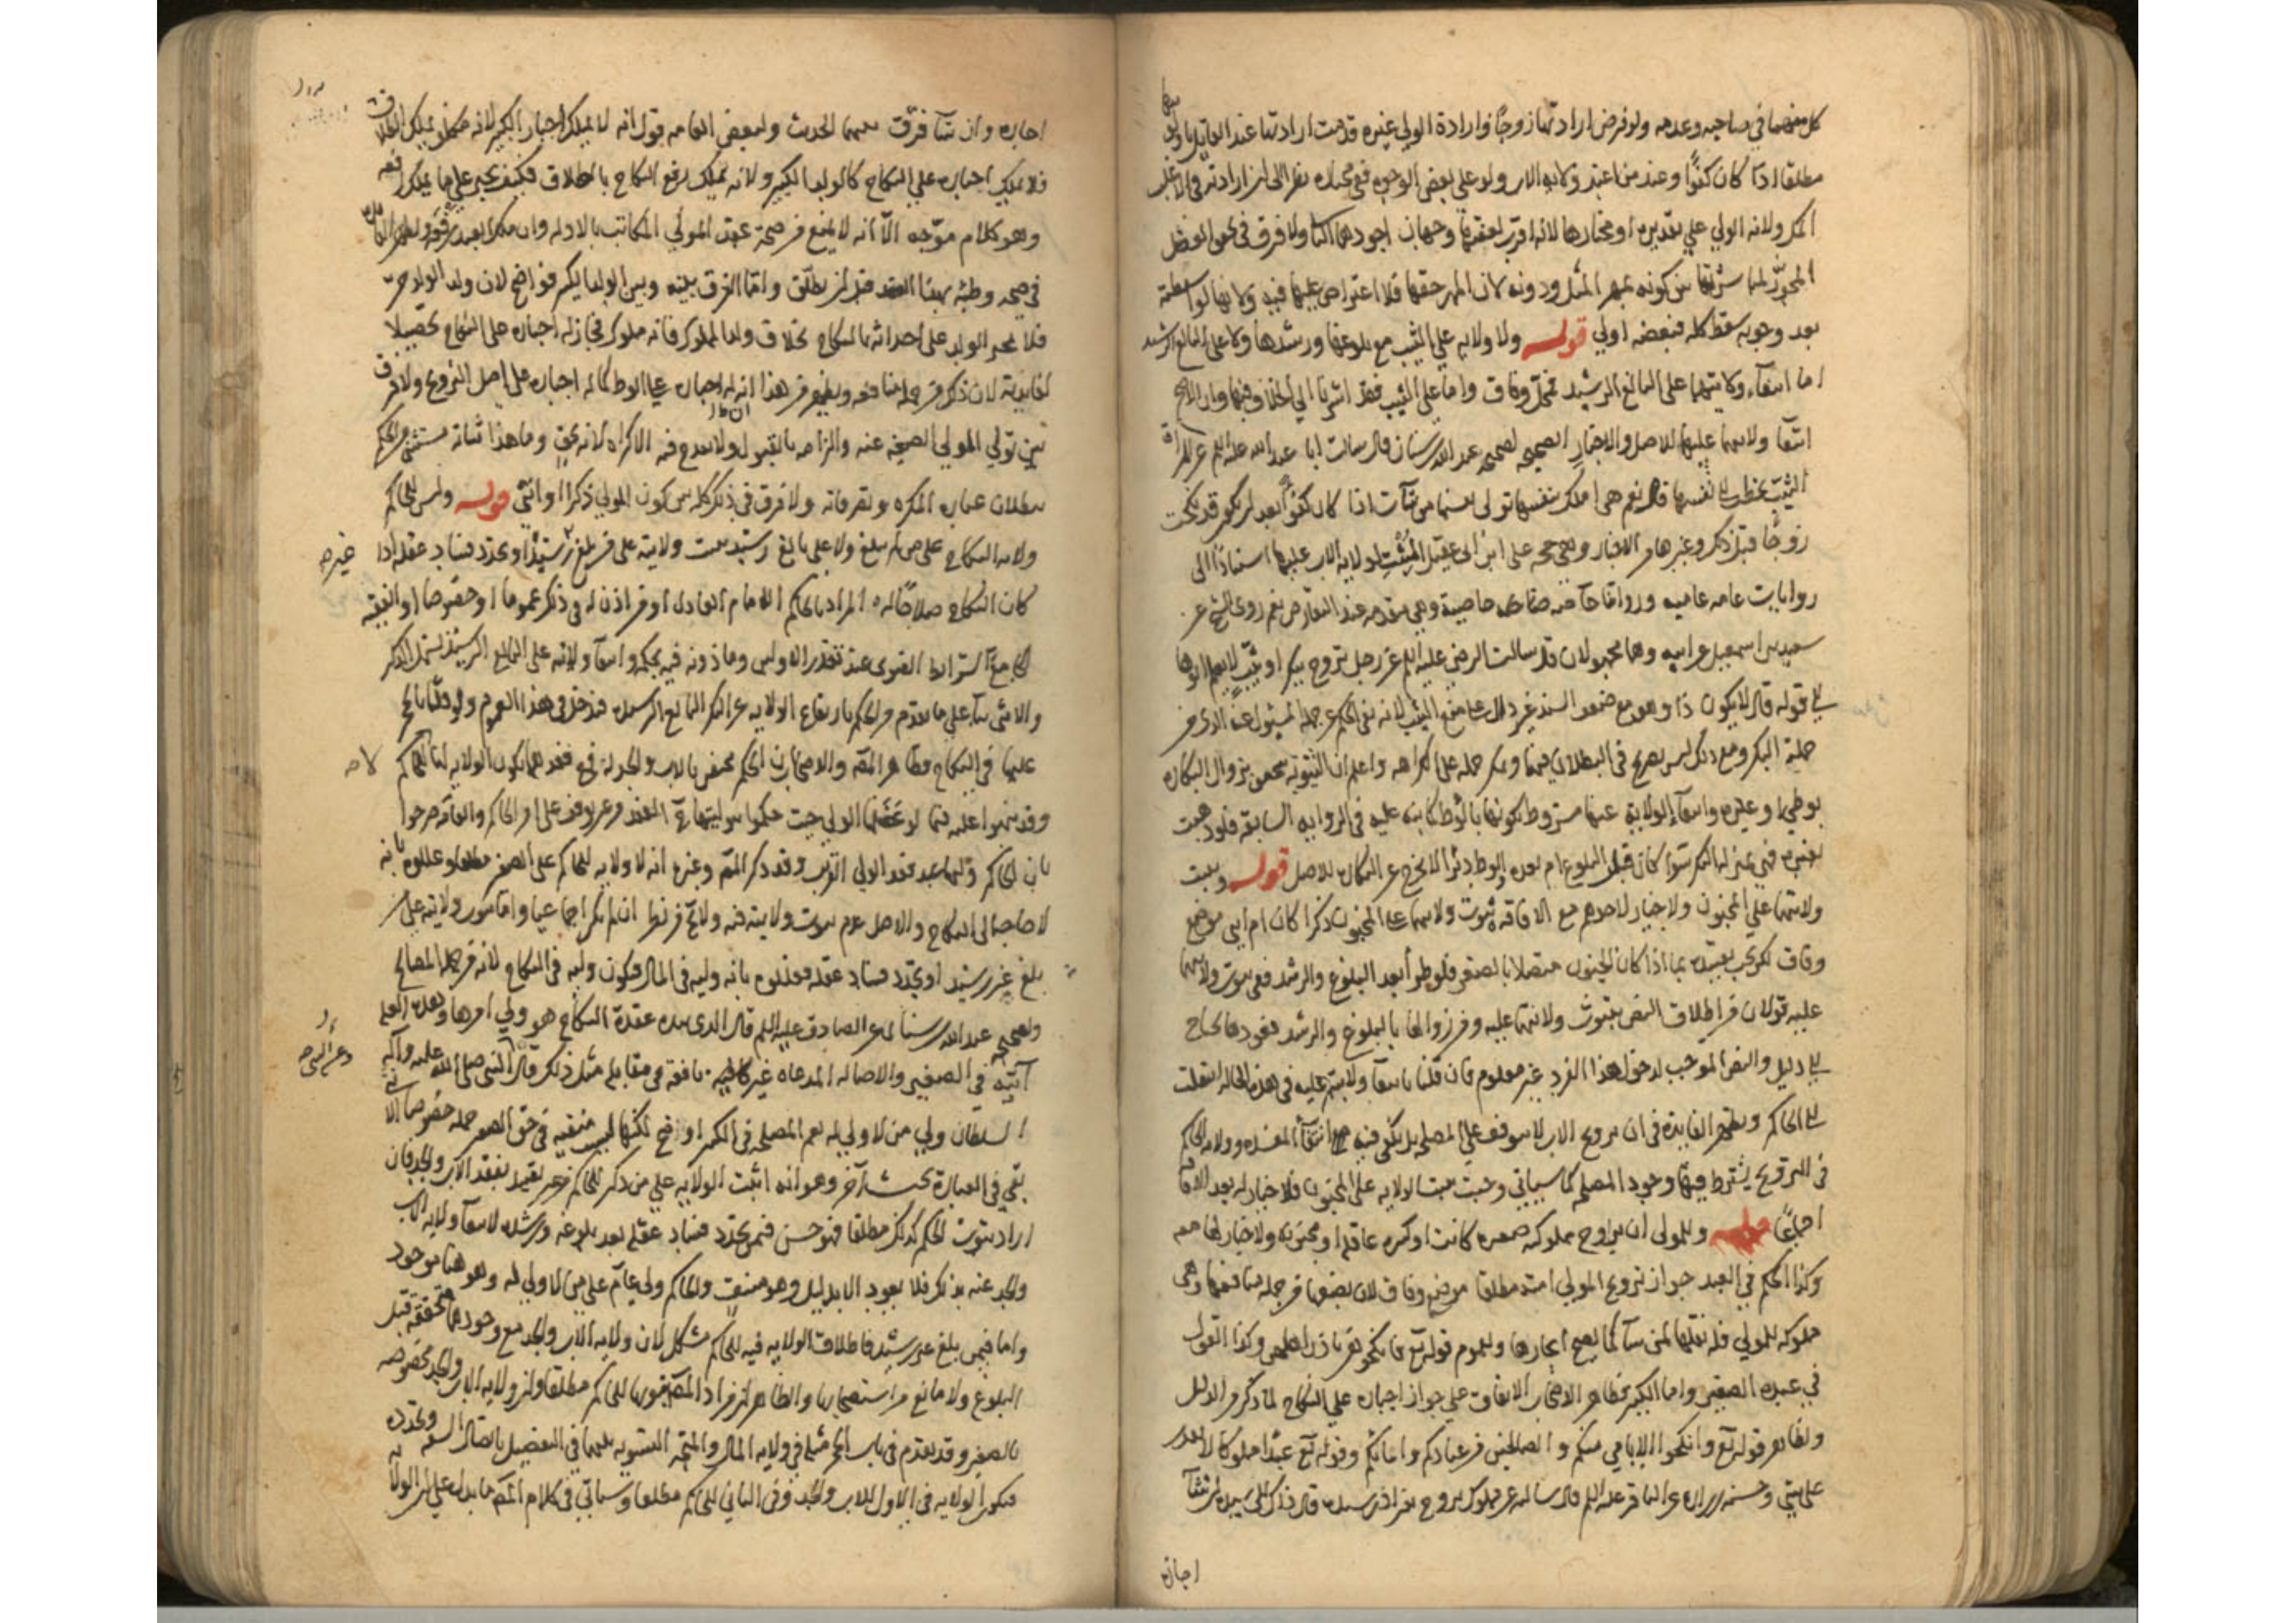 كل منهما في صاحبه وعدمه ولو فرض ارادتها زوجًا وارادة الولي غيره قدمت ارادتها عند القائل باولويتها
مطلقا اذا كان كفوًا وعند من اعتبر ولاية الاب ولو على بعض الوجوه ففي مختاره نظر الى ان ارادته في الاغلب
اكمل ولانه الولي علي تقديره او مختارها لانه اقرب لعفتها وجهان اجودهما الثاني ولا فرق في محل العضل
المجوز لها بين كونه بمهر المثل ودونه لان المهر حقها فلا اعتراض عليها فيه ولانها لو اسقطته
بعد وجوبه سقط كله فبعضه اولي قوله ولا ولاية علي الثيب مع بلوغها ورشدها ولا على البالغ الرشيد
اما انتفاء ولايتهما على البالغ الرشيد فمحل وفاق واما على الثيب فقد اشرنا الي الخلاف فيها وان الاصح
انتفا ولايتهما عليها للاصل والاخبار الصحيحه كصحيحه عبد الله بن سنان قال سالت ابا عبد الله عليه السلام عن المراة
الثيب تخطب الى نفسها قال نعم هي املك بنفسها تولي نفسها من شات اذا كان كفوًا بعد ان تكون قد نكحت
زوجًا قبل ذلك وغيرها من الاخبار وهي حجه على ابن ابي عقيل المثبت لولاية الاب عليها استنادا الى
روايات عامه عاميه ورواياتنا خاصة وهي مقدمه عند التعارض نعم روى الشيخ عن
سعيد بن اسمعيل عن ابيه وهما مجهولان قال سالت الرضي عليه السلم عن رجل تزوج ببكر او ثيب لا يعلم ابوها
الي قوله قال لا يكون ذا وهو مع ضعف السند غير دال على منع الثيب لانه نفي الحكم عن جملة المسئول عنه الذي من
جملته البكر ومع ذلك ليس بصريح في البطلان فيهما ويمكن حمله على الكراهه واعلم ان الثيوبة تتحقق بزوال البكاره
بوطئ وغيره وانتفا الولاية عنها مشروط بكونها بالوطئ كما نبه عليه في الرواية السابقة فلو ذهبت
بغيره فهي بمنزلة البكر سوا كان قبل البلوغ ام بعده والوطئ دبرا لا يخرج عن البكاره للاصل قوله ويثبت
ولايتهما علي المجنون ولا خيار لاحدهم مع الافاقه ثبوت ولايتهما على المجنون ذكرا كان ام انثى موضع
وفاق لكن يجب تقييده بما اذا كان الجنون متصلا بالصغر فلو طرأ بعد البلوغ والرشد ففي ثبوت ولايتهما
عليه قولان من اطلاق النص بثبوت ولايتهما عليه ومن زوالها بالبلوغ والرشد فعودها يحتاج
الي دليل والنص الموجب لدخول هذا الفرد غير معلوم فان قلنا بانتفا ولايتهما عليه في هذه الحاله انتقلت
الي الحاكم وتظهر الفايدة في ان تزويج الاب لا يتوقف علي المصلحه بل يكفي فيه انتفا المفسده وولاية الحاكم
في التزويج يشترط فيها وجود المصلحه كما سياتي وحيث يثبت الولايه على المجنون فلا خيار له بعد الافاقه
اجماعًا قوله وللمولى ان يزوج مملوكته صغيره كانت او كبيره عاقله او مجنونه ولا خيار لها معه
وكذا الحكم في العبد جواز تزويج المولي امته مطلقا موضع وفاق لان بضعها من جملة منافعها وهي
مملوكه للمولي فله نقلها لمن شآ كما يصح ايجارها ولعموم قوله تع فانكحوهن باذن اهلهن وكذا القول
في عبده الصغير واما الكبير فظاهر الاصحاب الاتفاق علي جواز اجباره علي النكاح لما ذكر من الدليل
ولظاهر قوله تع وانكحوا الايامي منكم والصالحين من عبادكم وامائكم وقوله تع عبدا مملوكا لا يقدر
على شئ وحسنه زراره عن الباقر عليه السلم قال سالته عن مملوك تزوج بغير اذن سيده قال ذلك الى سيده ان شآ
اجازه
اجازه وان شآ فرق بينهما الحديث ولبعض العامه قول انه لا يملك اجبار الكبير لانه مكلف يملك الطلاق
فلا يملك اجباره علي النكاح كالولد الكبير ولانه يملك رفع النكاح بالطلاق فكيف يجبر علي ما يملك رفعه
وهو كلام موجه الّا انه لا يمنع من صحة عقد المولي
في صحه وطئه بهذا العقد قبل ان يطلق واما الفرق بينه وبين الولد الكبير فواضح لان ولد الولد حر
فلا يجبر الولد على احداثه بالنكاح بخلاف ولد المملوك فانه مملوك فجاز له اجباره على النكاح تحصيلا
لفايدته لان ذلك من جمله منافعه ويظهر من هذا ان له اجباره على الوطئ كما له اجباره على اصل التزويج ولا فرق
بين تولي المولي الصيغه عنه والزامه بالقبول ولا يقدح فيه الاكراه لانه بحق وما هذا شانه مستثنى من الحكم
ببطلان عباره المكره وتصرفاته ولا فرق في ذلك كله بين كون المولي ذكرا او انثي قوله وليس للحاكم
ولايه النكاح على من لم يبلغ ولا على بالغ رشيد ويثبت ولايته على من بلغ غير رشيد او تجدد فساد عقله اذا
كان النكاح صلاحًا له المراد بالحاكم الامام العادل او من اذن له في ذلك عموما او خصوصا او الفقيه
الجامع لشرائط الفتوى عند تعذر الاولين وماذونه فيه بحكمه وانتفا ولايته على البالغ الرشيد يشمل الذكر
والانثى بنآ علي ما تقدم من الحكم بارتفاع الولايه عن البكر البالغ الرشيده فتدخل في هذا العموم ولو قلنا بالحجر
عليها في النكاح فظاهر المص والاصحاب ان الحكم مختص بالاب والجد له فمع فقدهما يكون الولايه لها لا للحاكم
وقد نبهوا عليه فيما لو عضلها الولي حيث حكموا بتوليتها ح العقد من غير توقف على امر الحاكم والعامه صرحوا
بان الحاكم وليها عند فقد الولي القريب وقد ذكر المص وغيره انه لا ولاية للحاكم على الصغير مطلقا وعللوه بانه
لا حاجة له الى النكاح والاصل عدم ثبوت ولايته فيه ولا يخ من نظر ان لم يكن اجماعيا واما ثبوت ولايته على من
بلغ غير رشيد او تجدد فساد عقله فمعلوم بانه وليه في المال فيكون وليه في النكاح لانه من جمله المصالح
ولصحيحه عبد الله بن سنان عن الصادق عليه السلم قال الذي بيده عقدة النكاح هو ولي امرها وهذه العله
آتية في الصغير والاصاله المدعاه غير كافيه في مقابله مثل ذلك وعن النبي صلى الله عليه وآله
السلطان ولي من لا ولي له نعم المصلحه في الكبير اوضح لكنها ليست منتفيه في حق الصغير جمله خصوصا الانثى
بقي في العبارة بحث آخر وهو انه اثبت الولايه علي من ذكر للحاكم من غير تقييد بفقد الاب والجد فان
اراد ثبوت الحكم كذلك مطلقا فهو حسن فيمن تجدد فساد عقله بعد بلوغه ورشده لانتفا ولايه الاب
والجد عنه بذلك فلا يعود الا بدليل وهو منتف والحاكم ولي عام على من لا ولي له وهو هنا موجود
واما فيمن بلغ غير رشيد فاطلاق الولايه فيه للحاكم مشكل لان ولايه الاب والجد مع وجودهما متحققة قبل
البلوغ ولا مانع من استصحابها والظاهر ان مراد المص ثبوتها للحاكم مطلقا وان ولايه الاب والجد مخصوصه
بالصغير وقد تقدم في باب الحجر مثله في ولايه المال والمتجه التسويه بينهما في التفصيل باتصال السفه وتجدده
فيكون الولايه في الاول للاب والجد وفي الثاني للحاكم مطلقا وسياتي في كلام المص ما يدل علي ان الولايه